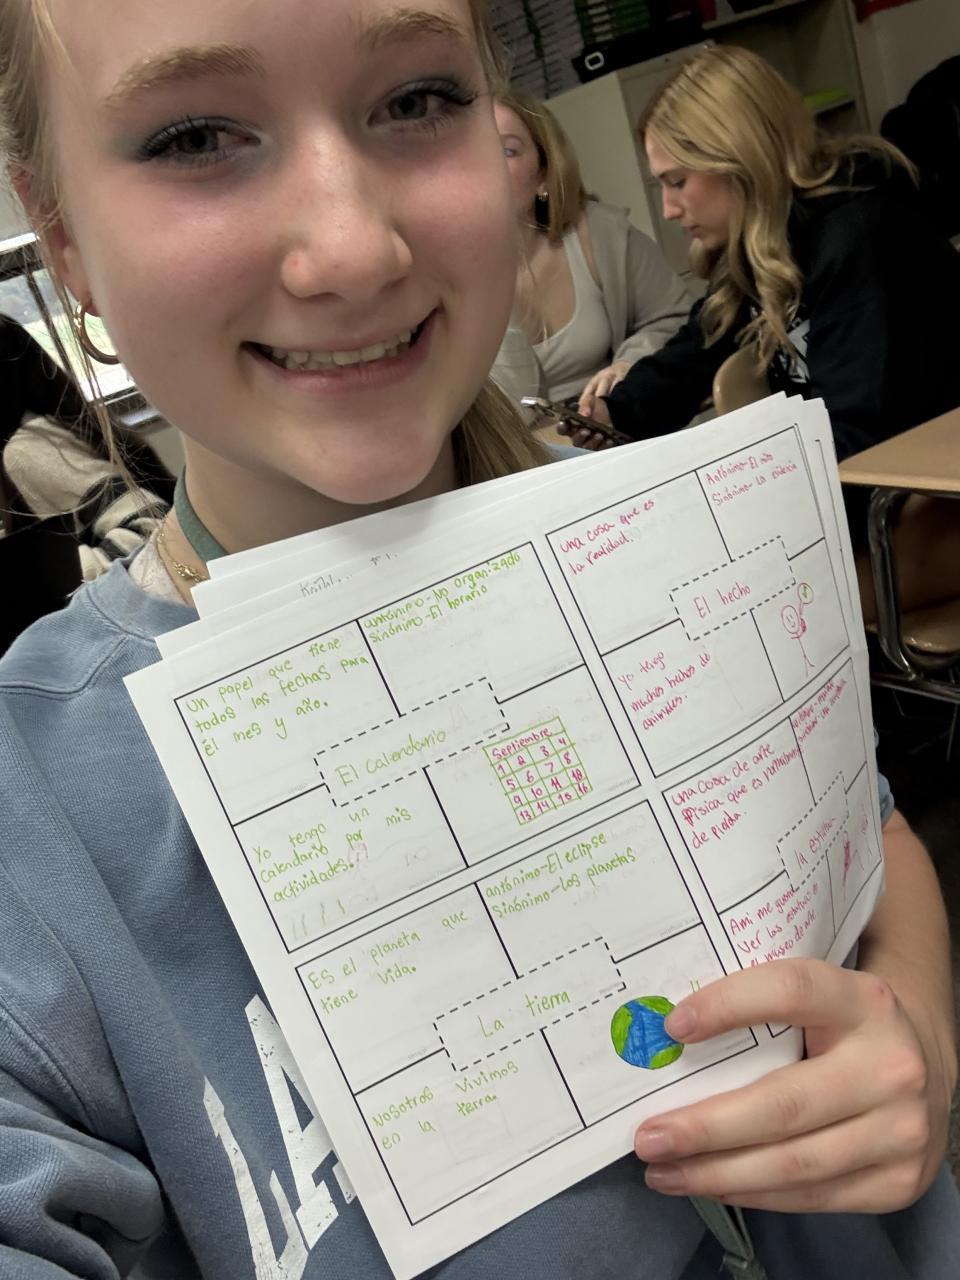 Un papel que tiene
todos las fechas para
el mes y año.
antónimo-No organizado
sinónimo-El horario
El Calendario
Yo tengo un
calendario por mis
actividades.
Septiembre
1 2 3 4
5 6 7 8
9 10 11 12
13 14 15 16
Es el planeta que
tiene vida.
antónimo-El eclipse
sinónimo-los planetas
La tierra
Nosotros vivimos
en la tierra.
una cosa que es
la realidad.
Antónimo-El mito
Sinónimo-La evidencia
El hecho
Yo tengo
muchos hechos de
animales.
una cosa de arte
física que es normalmente
de piedra.
la estatua
Ami me gusta
ver las estatuas
el museo de arte
LA